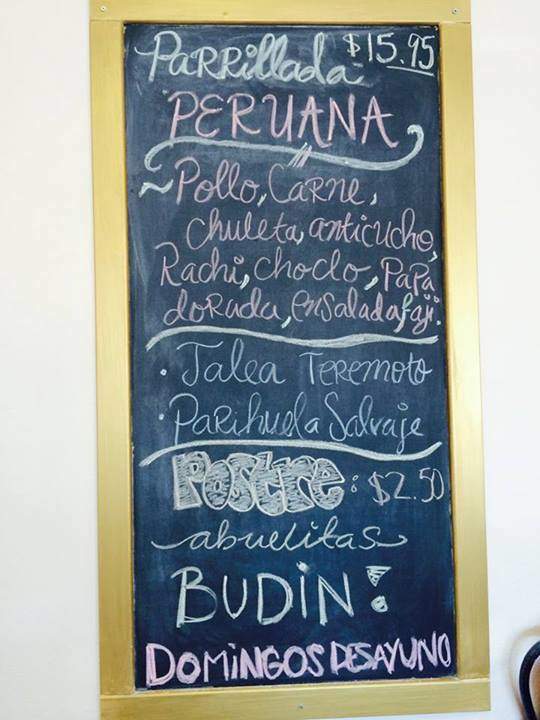 Parrillada $15.95
PERUANA
~Pollo, Carne,
Chuleta, anticucho,
Rachi, choclo, Papa
dorada, ensalada, aji.
• Jalea Teremoto
• Parihuela Salvaje
Postre: $2.50
abuelitas
BUDIN!
DOMINGOS DESAYUNO